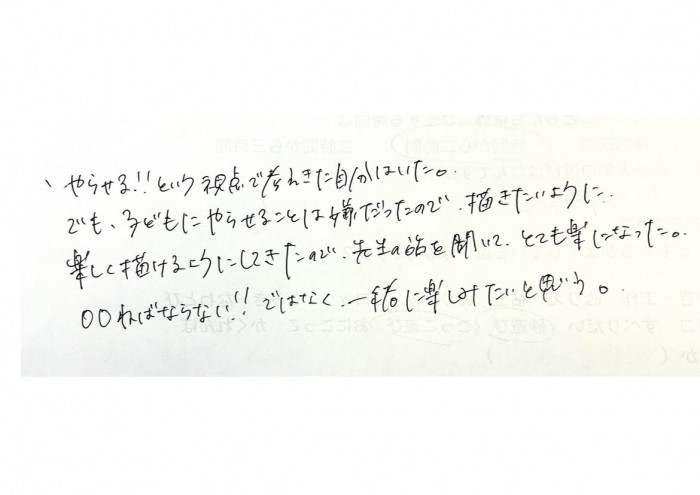 、やらせる!!という視点で考えてきた自分はいた。
でも、子どもにやらせることは嫌だったので、描きたいように、
楽しく描けるようにしてきたので、先生の話を聞いて、とても楽になった。
〇〇ねばならない!!ではなく、一緒に楽しみたいと思う。